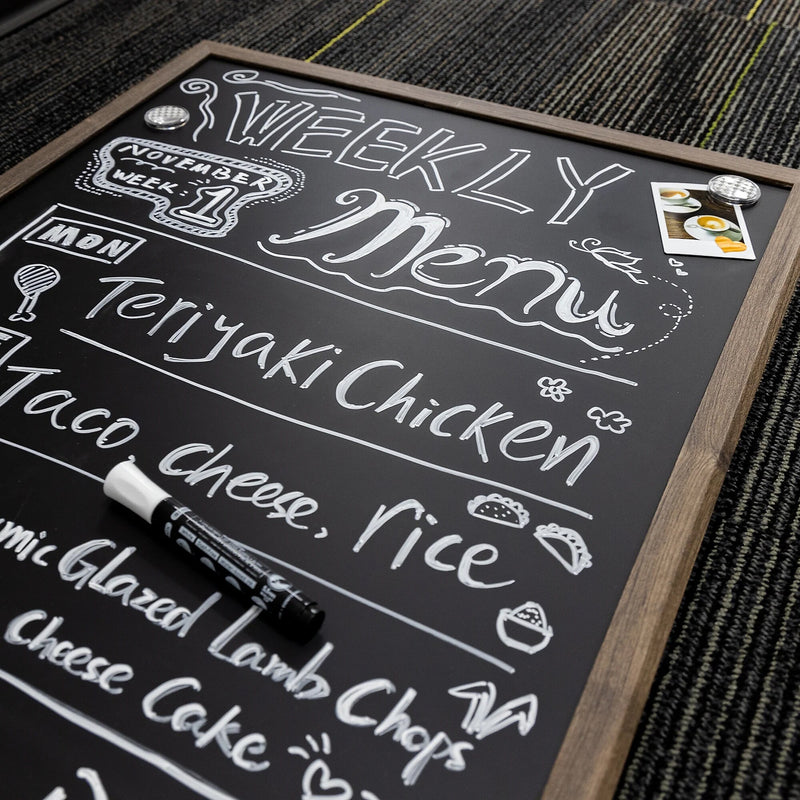 WEEKLY
Menu
NOVEMBER
WEEK: 1
MON
Teriyaki Chicken
Taco cheese, rice
Glazed Lamb Chops
Cheese Cake